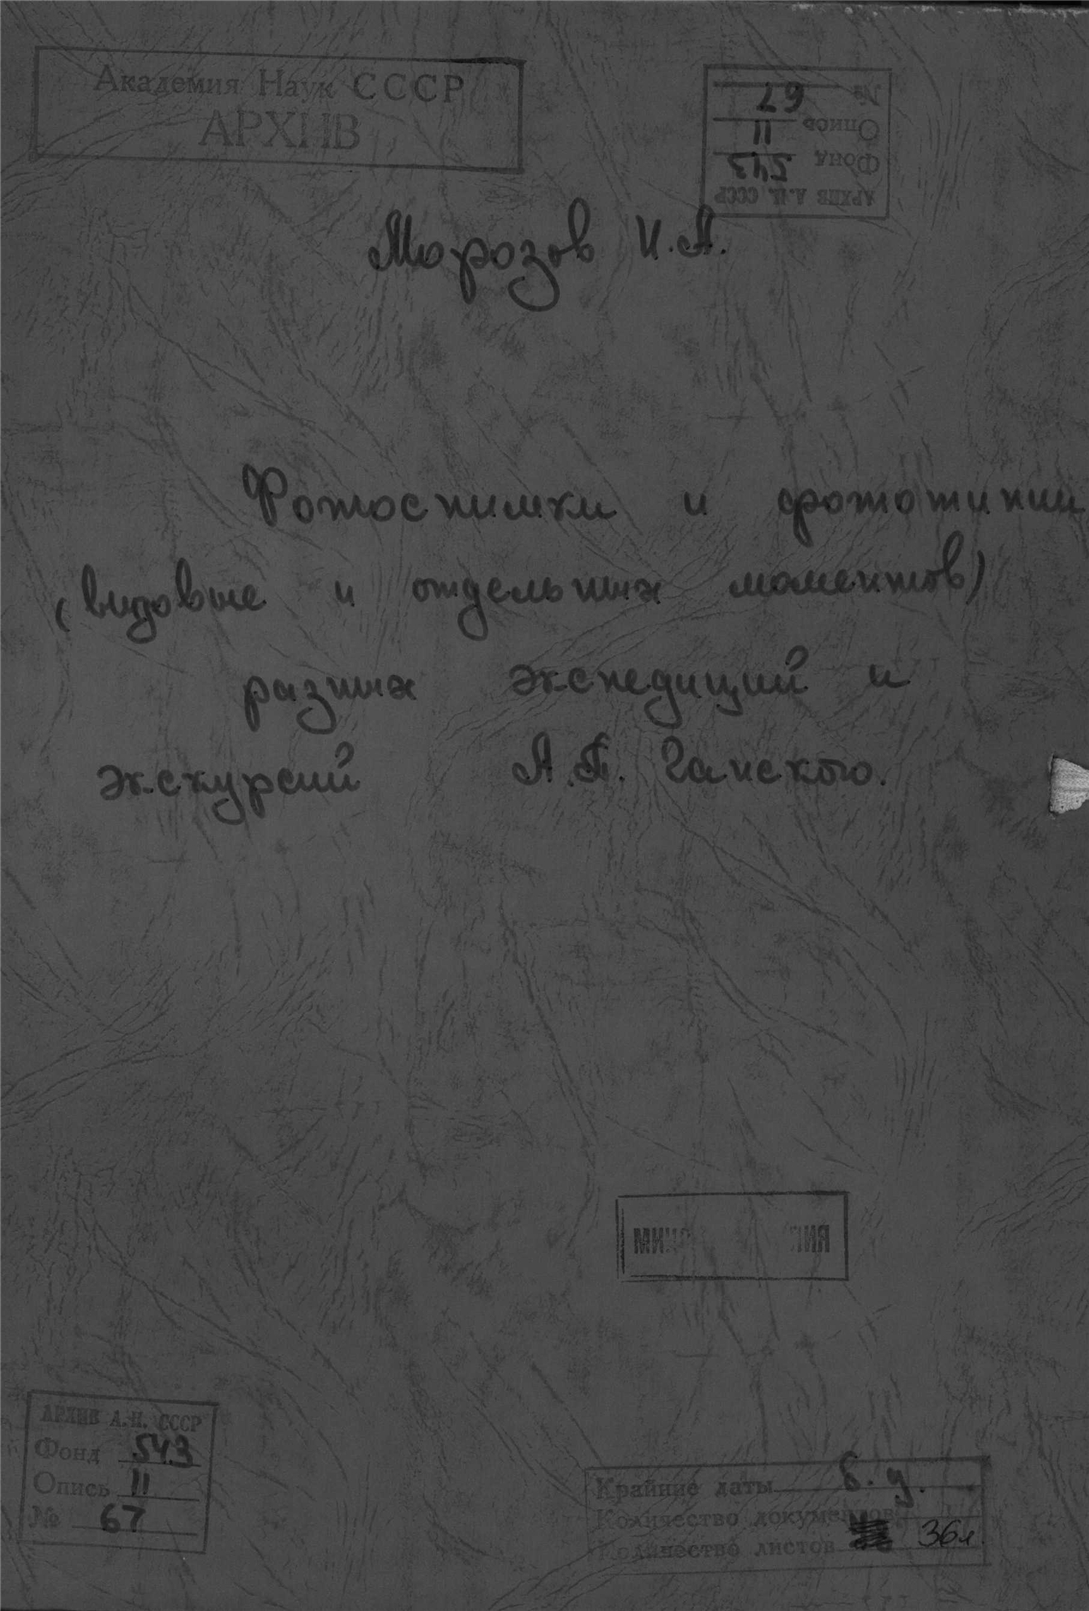 Академия Наук СССР
АРХИВ
№ 67
Опись 11
Фонд 543
АРХИВ А.Н. СССР
Морозов Н.А.
Фотоснимки и фототипии
(видовые и отдельных моментов)
разных экспедиций и
экскурсий А.П. Ганского.
АРХИВ А.Н. СССР
Фонд 543
Опись 11
№ 67
Крайние даты б.д.
Количество документов
Количество листов 36л